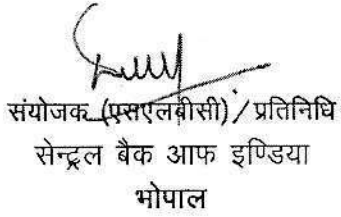 संयोजक (एसएलबीसी)/प्रतिनिधि
सेन्ट्रल बैक आफ इण्डिया
भोपाल